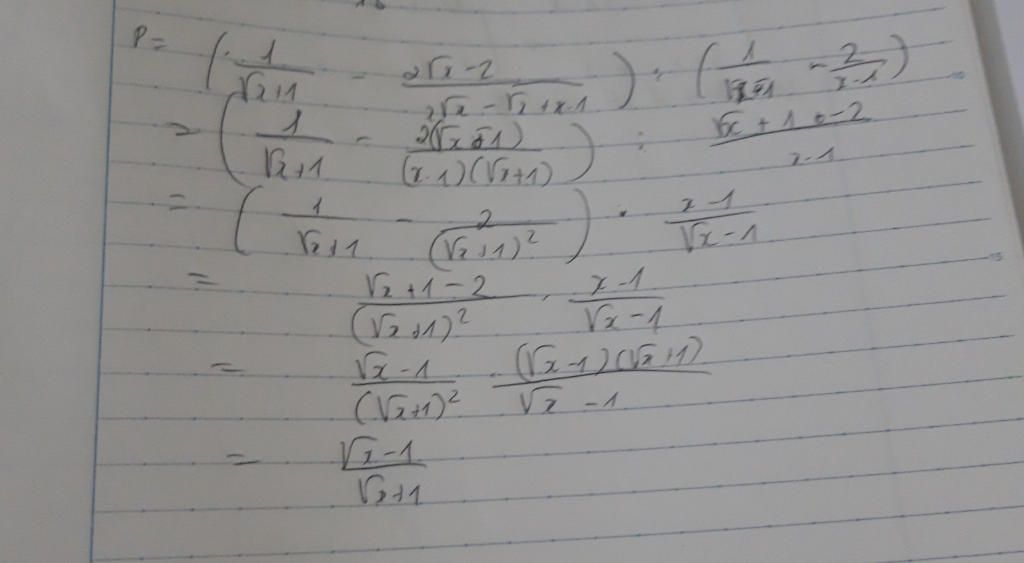 P = ( 1/(√x+1) - (2√x-2)/(x√x-√x+x-1) ) : ( 1/(√x-1) - 2/(x-1) )
= ( 1/(√x+1) - 2(√x-1)/((x-1)(√x+1)) ) : (√x+1-2)/(x-1)
= ( 1/(√x+1) - 2/(√x+1)² ) . (x-1)/(√x-1)
= (√x+1-2)/(√x+1)² . (x-1)/(√x-1)
= (√x-1)/(√x+1)² . (√x-1)(√x+1)/(√x-1)
= (√x-1)/(√x+1)